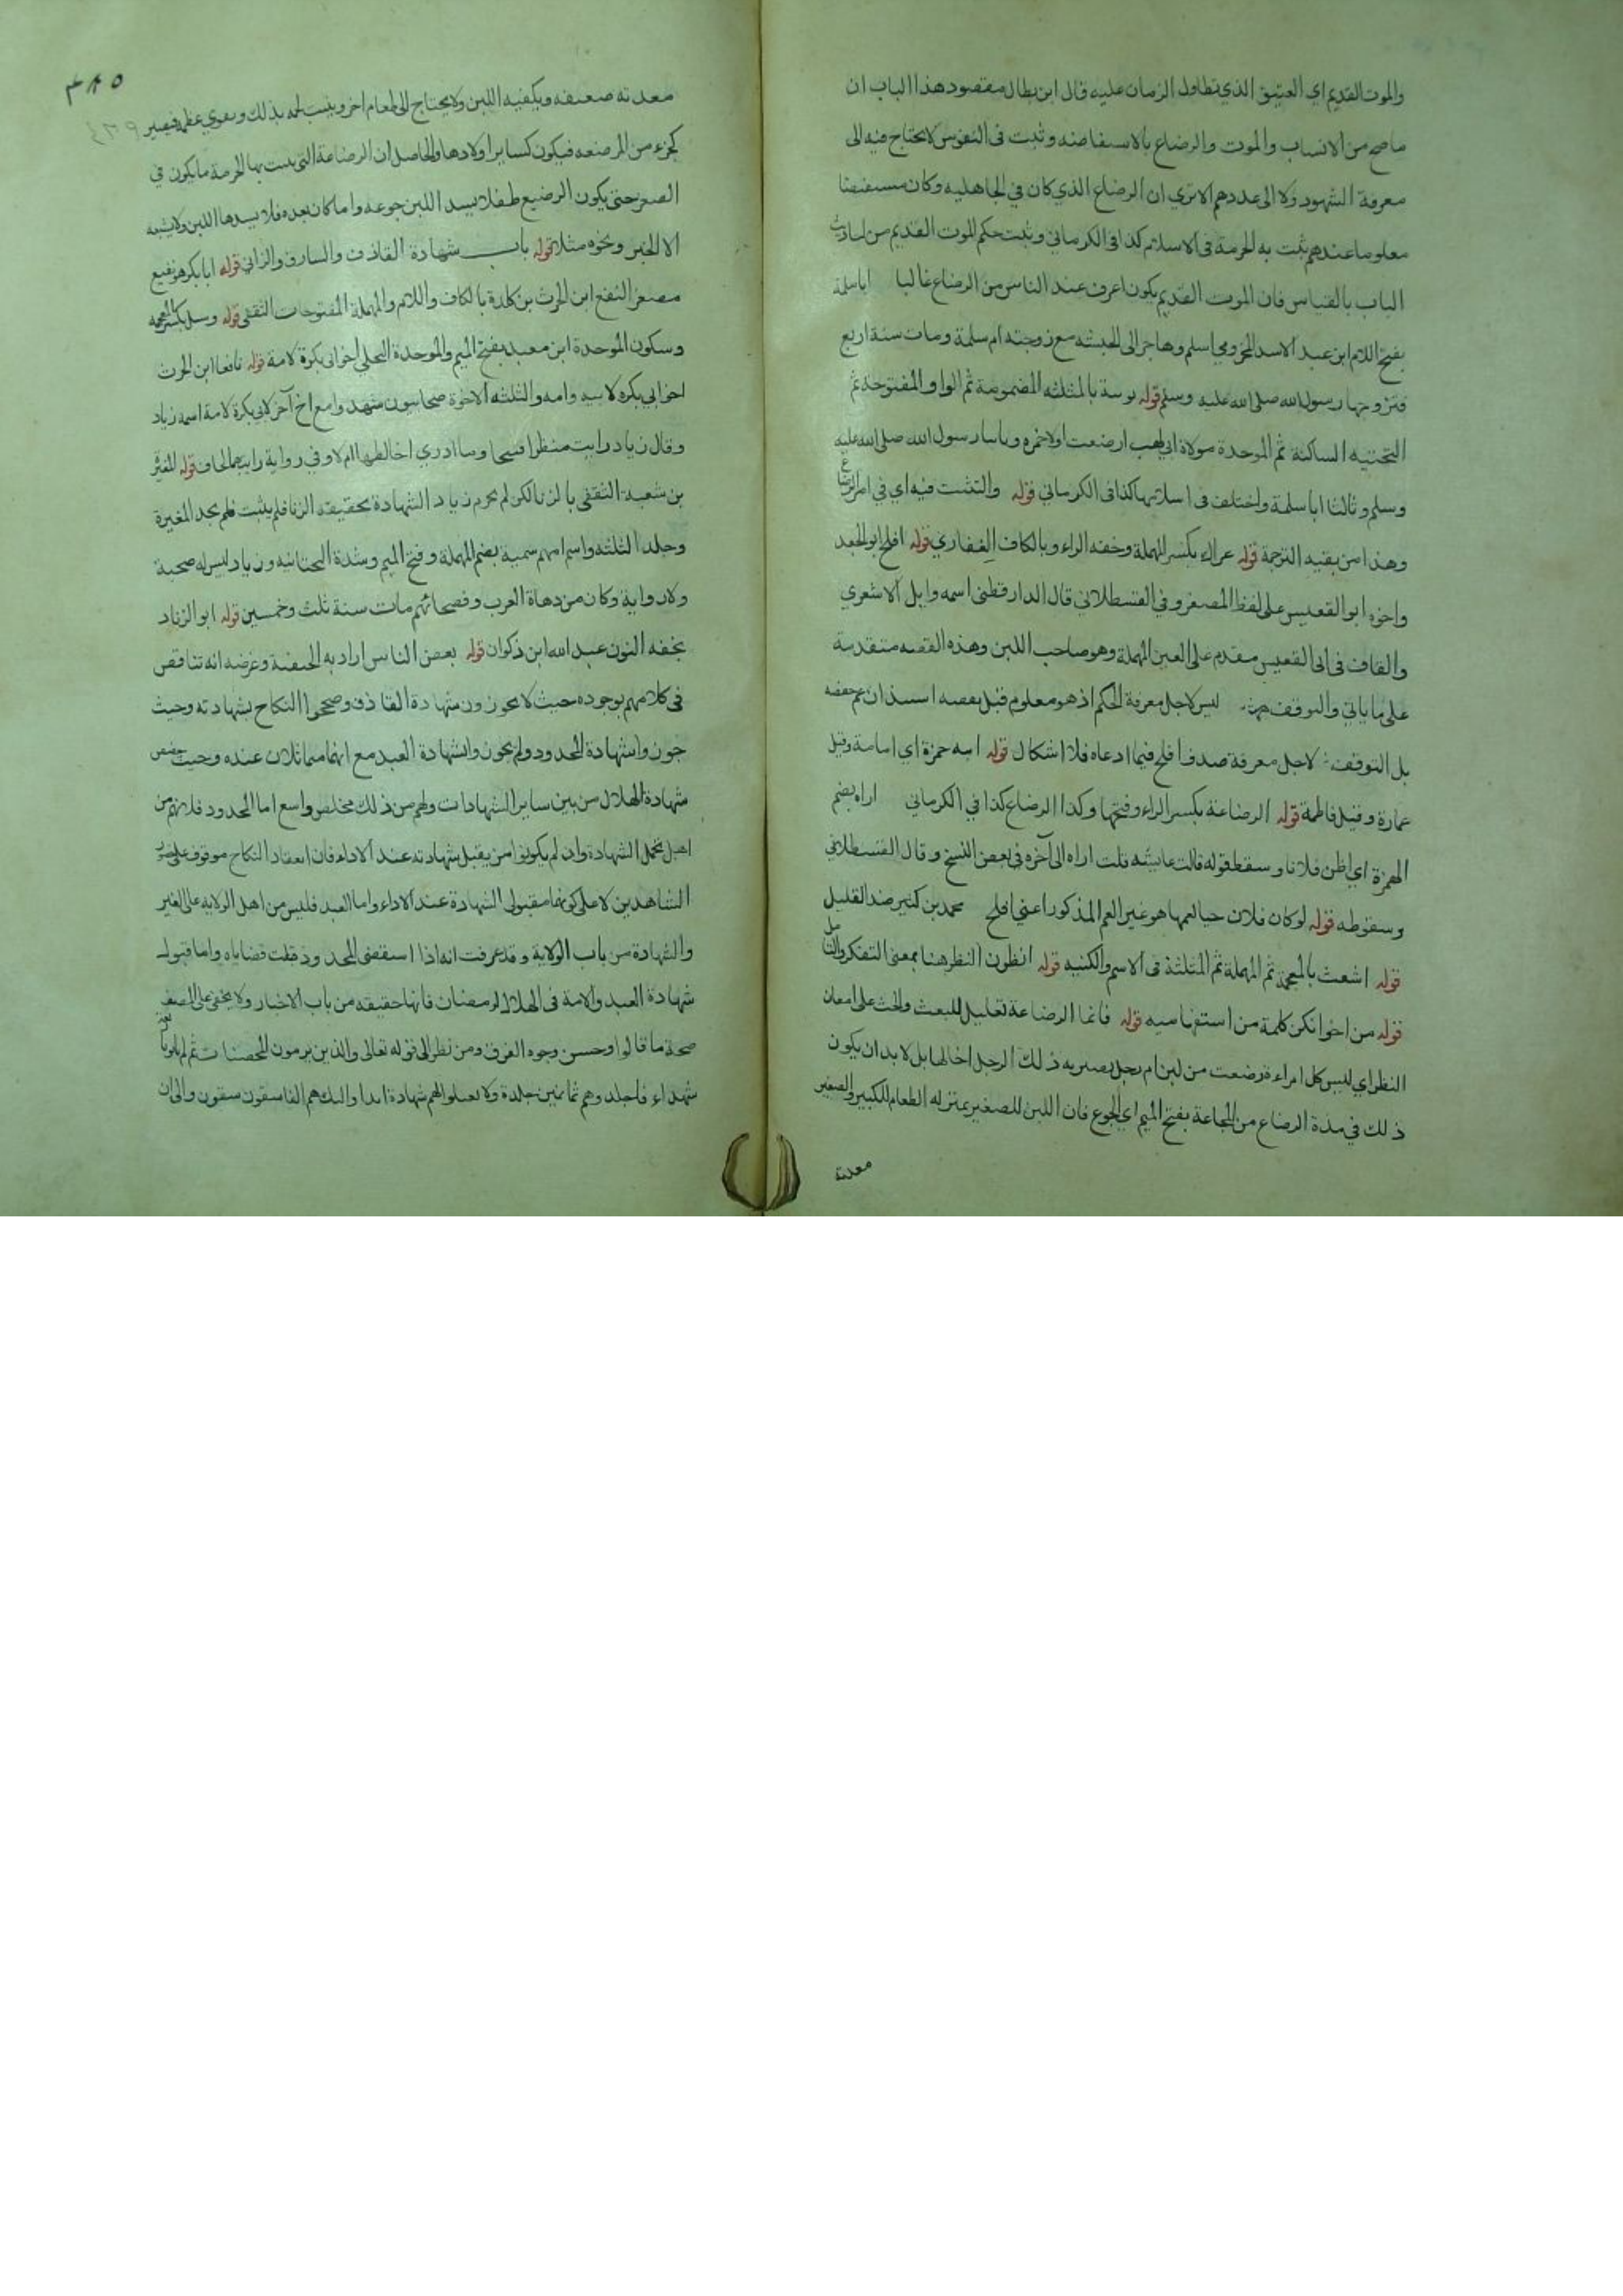 والموت القديم اي العتيق الذي تطاول الزمان عليه قال ابن بطال مقصود هذا الباب ان
ما صح من الانساب والموت والرضاع بالاستفاضه وثبت فى النفوس لا يحتاج فيه الى
معرفة الشهود ولا الى عددهم الا تري ان الرضاع الذي كان في الجاهليه وكان مستفيضا
معلوما عندهم ثبت به الحرمة فى الاسلام كذا فى الكرماني وثبت حكم الموت القديم من
الباب بالقياس فان الموت القديم يكون اعرف عند الناس من الرضاع غالبا اباسلمة
بفتح اللام ابن عبد الاسد المخزومي اسلم وهاجر الى الحبشه مع زوجته ام سلمة ومات سنة اربع
فتزوجها رسول الله صلى الله عليه وسلم قوله ثوبية بالمثلثه المضمومة ثم الواو المفتوحة ثم
التحتيه الساكنة ثم الموحدة مولاة ابي لهب ارضعت اولا حمزه وثانيا رسول الله صلى الله عليه
وسلم وثالثا اباسلمة واختلف فى اسلامها كذا فى الكرماني قوله والتثبت فيه اي في امر الرضاع
وهذا من بقيه الترجمة قوله عراك بكسر المهملة وخفه الراء وبالكاف الغفاري قوله افلح ابو الجعد
واخوه ابو القعيس على لفظ المصغر وفي القسطلاني قال الدارقطنى اسمه وايل الاشعري
والقاف فى ابي القعيس مقدم على العين المهملة وهو صاحب اللبن وهذه القصه متقدمة
على ما ياتي والتوقف ليس لاجل معرفة الحكم اذ هو معلوم قبل بقصه استيذان عم حفصه
بل التوقف لاجل معرفة صدق افلح فيما ادعاه فلا اشكال قوله ابنه حمزة اي امامة وقيل
عمارة وقيل فاطمة قوله الرضاعة بكسر الراء وفتحها وكذا الرضاع كذا في الكرماني اراه بضم
الهمزة اي اظن فلانا وسقط قوله قالت عايشه قلت اراه الى آخره في بعض النسخ وقال القسطلاني
وسقوطه قوله لو كان فلان حيا لعمها هو غير العم المذكور اعني افلح محمد بن كثير ضد القليل
قوله اشعث بالمعجمة ثم المهملة ثم المثلثة فى الاسم والكنيه قوله انظرن النظر هنا بمعنى التفكر والتامل
قوله من اخوانكن كلمة من استفهاميه قوله فانما الرضاعة تعليل للبعث والحث على امعان
النظر اي ليس كل امراءة رضعت من لبن ام رجل يصير به ذلك الرجل اخا لها بل لا بد ان يكون
ذلك في مدة الرضاع من المجاعة بفتح الميم اي الجوع فان اللبن للصغير بمنزله الطعام للكبير والصغير
معدته
٣٨٥
معدته ضعيفه ويكفيه اللبن ولا يحتاج الى طعام اخر وينبت لحمه بذلك ويقوي عظمه فيصير
كجزء من المرضعه فيكون كساير اولادها والحاصل ان الرضاعة التي يثبت بها الحرمة ما يكون في
الصغر حتى يكون الرضيع طفلا يسد اللبن جوعه واما كان بعده فلا يسدها اللبن ولا يشبعه
الا الخبز ونحوه مثلا قوله باب شهادة القاذف والسارق والزاني قوله ابا بكره نفيع
مصغر النفع ابن الحرث بن كلدة بالكاف واللام والمهملة المفتوحات الثقفى قوله وسبل بكسر المعجمه
وسكون الموحدة ابن معبد بفتح الميم والموحدة البجلي اخو ابى بكرة لامه قوله نافعا ابن الحرث
اخو ابي بكره لابيه وامه والثلثه الاخوة صحابيون شهدوا مع اخ آخر لابى بكرة لامه اسمه زياد
وقال زياد رايت منظرا قبيحا وما ادري اخالطها ام لا وفي رواية رايتهما فى لحاف قوله المغيرة
بن شعبة الثقفى بالزنا لكن لم يجزم زياد الشهادة بحقيقه الزنا فلم يثبت فلم يحد المغيرة
وجلد الثلثه واسم امهم سمية بضم المهملة وفتح الميم وشدة التحتانيه وزياد ليس له صحبة
ولا رواية وكان من دهاة العرب وفصحائهم مات سنة ثلث وخمسين قوله ابو الزناد
بخفه النون عبد الله ابن ذكوان قوله بعض الناس اراد به الحنفية وغرضه انه تناقض
فى كلامهم بوجوده حيث لا يجوزون شهادة القاذف وصححوا النكاح بشهادته وحيث
جوزوا شهادة المحدود ولم يجوزوا شهادة العبد مع انهما متماثلان عنده وحيث خصص
شهادة الهلال من بين ساير الشهادات ولهم من ذلك مخلص واسع اما المحدود فلانهم من
اهل تحمل الشهادة وان لم يكونوا من يقبل شهادته عند الاداء فان انعقاد النكاح موقوف على حضور
الشاهدين لا على كونهما مقبولى الشهادة عند الاداء واما العبد فليس من اهل الولايه على الغير
والشهادة من باب الولاية وقد عرفت انه اذا استقضى المحدود قلت قضاياه واما قبول
شهادة العبد والامة فى الهلال لرمضان فانها حقيقه من باب الاخبار ولا يخفى على المصنف
صحة ما قالوا وحسن وجوه الفرق ومن نظر الى قوله تعالى والذين يرمون المحصنات ثم لم ياتوا باربعة
شهداء فاجلدوهم ثمانين جلدة ولا تقبلوا لهم شهادة ابدا واوليك هم الفاسقون والى ان